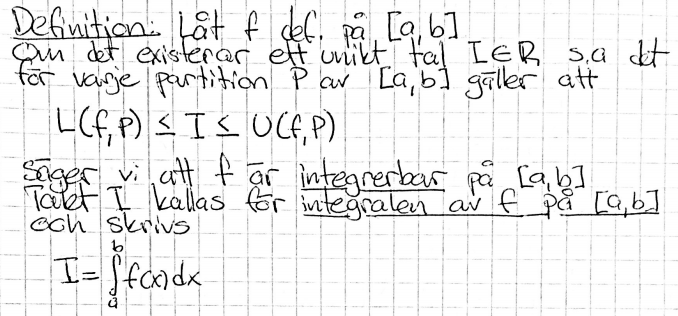 Definition: Låt f def. på [a,b]
Om det existerar ett unikt tal I∈R s.a det
för varje partition P av [a,b] gäller att
L(f,P) ≤ I ≤ U(f,P)
säger vi att f är integrerbar på [a,b]
Talet I kallas för integralen av f på [a,b]
och skrivs
I = ∫_a^b f(x)dx